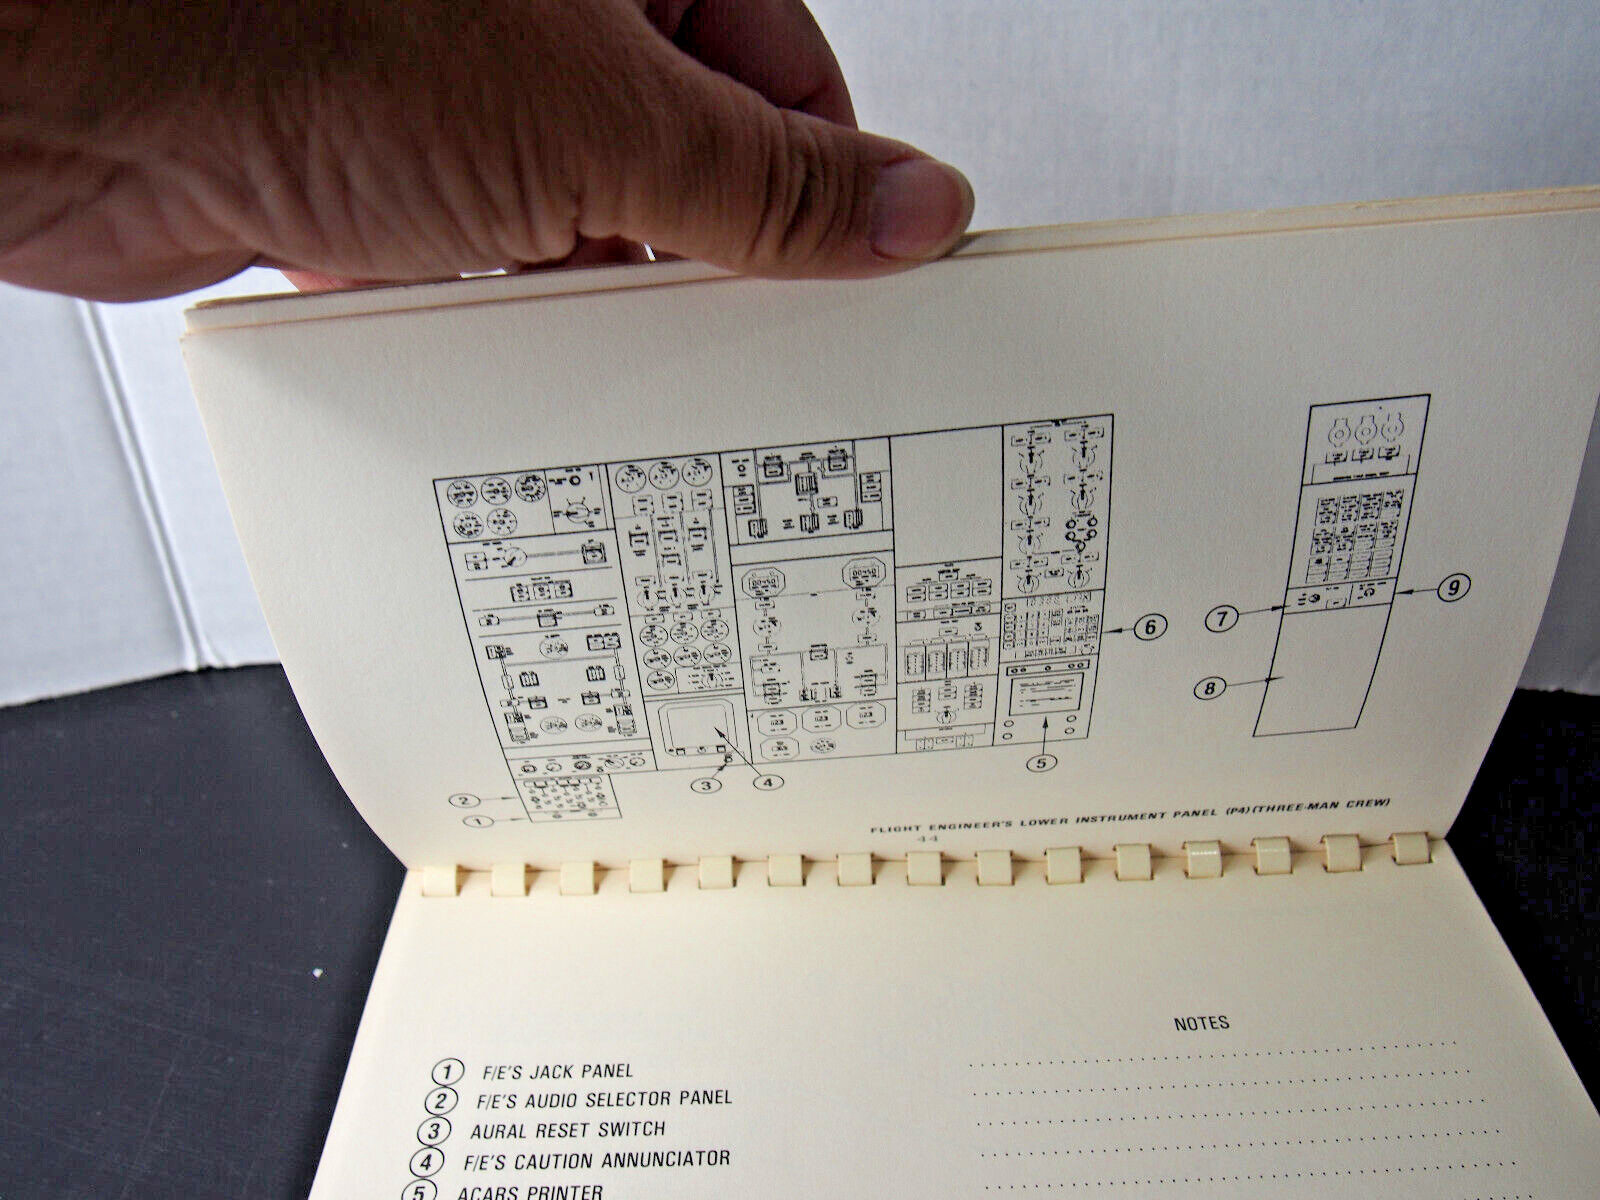 00450
00450
6
9
7
8
5
4
3
2
1
FLIGHT ENGINEER'S LOWER INSTRUMENT PANEL (P4) (THREE-MAN CREW)
44
NOTES
1 F/E'S JACK PANEL
2 F/E'S AUDIO SELECTOR PANEL
3 AURAL RESET SWITCH
4 F/E'S CAUTION ANNUNCIATOR
5 ACARS PRINTER